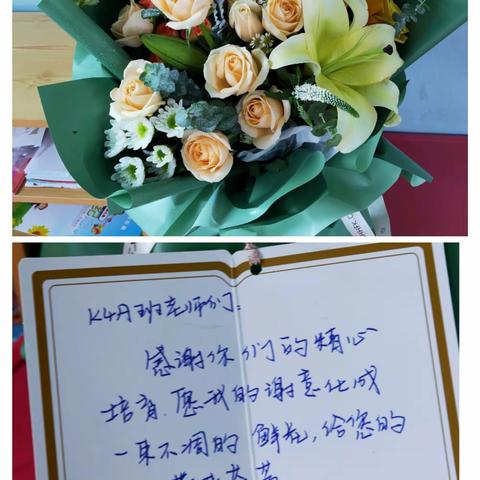 K4A班老师们:
感谢你们的精心
培育.愿我的谢意化成
一束不凋的鲜花,给您的